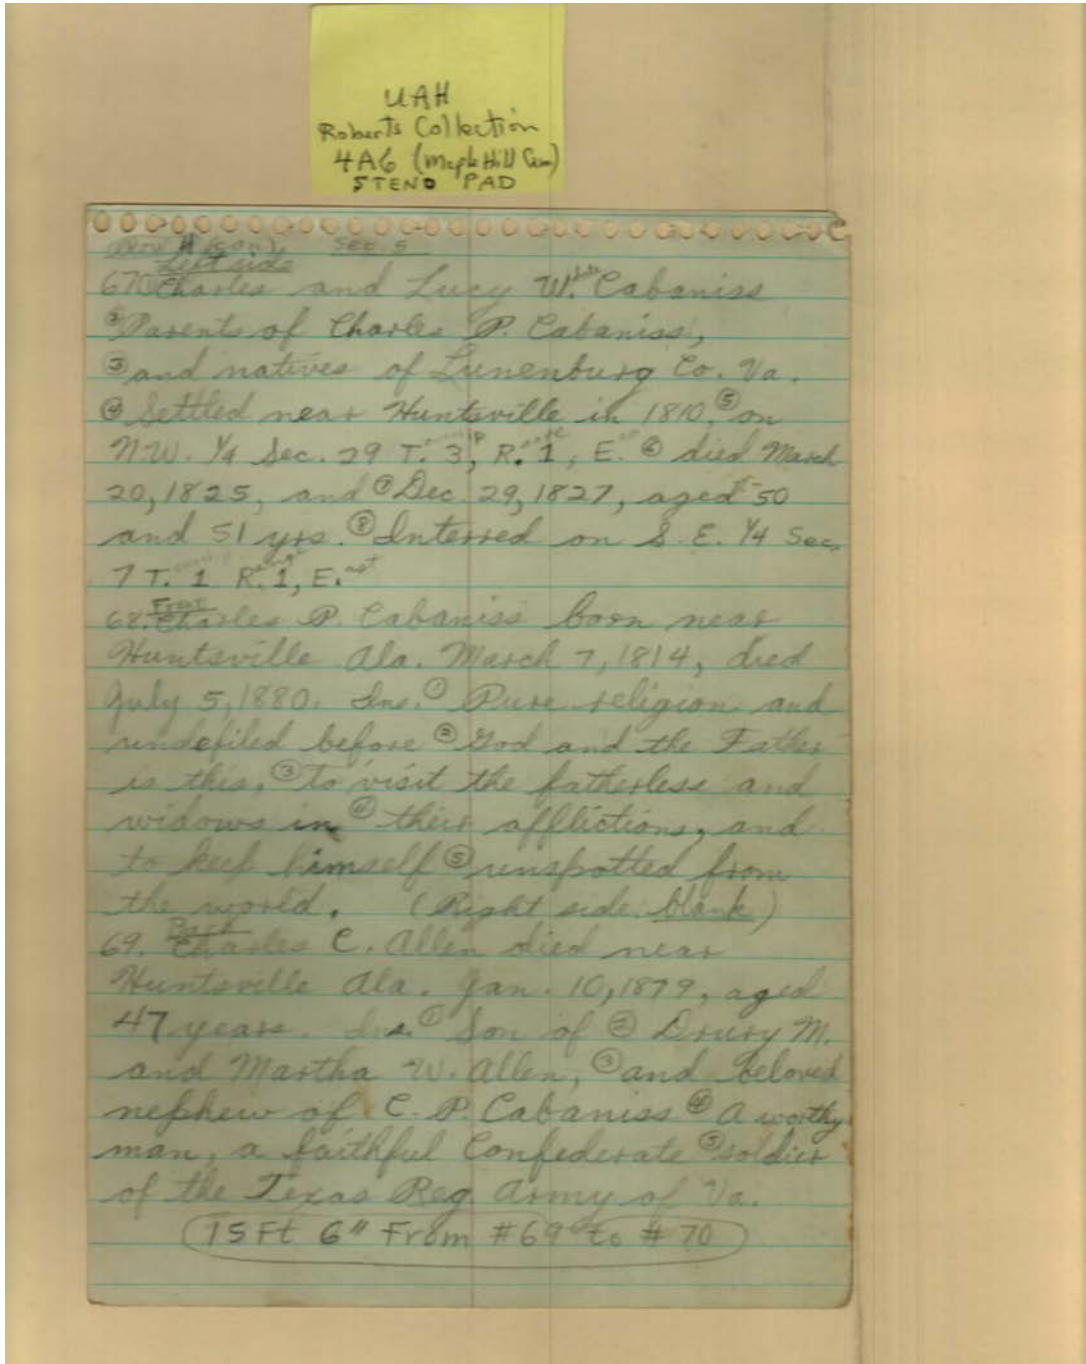 UAH
Roberts Collection
4A6 (Maple Hill Cem)
STENO PAD
Row H (con). Sec. 5
Left side
67① Charles and Lucy W. Cabaniss
② Parents of Charles P. Cabaniss,
③ and natives of Lunenburg Co. Va.
④ Settled near Huntsville in 1810, ⑤ on
N.W. 1/4 Sec. 29 T. 3, R. 1, E. ⑥ died March
20, 1825, and ⑦ Dec. 29, 1827, aged 50
and 51 yrs. ⑧ Interred on S.E. 1/4 Sec.
7 T. 1 R. 1, E.
Front
68. Charles P. Cabaniss born near
Huntsville Ala. March 7, 1814, died
July 5, 1880. Ins. ① Pure religion and
undefiled before ② God and the Father
is this, ③ to visit the fatherless and
widows in ④ their afflictions, and
to keep himself ⑤ unspotted from
the world. (Right side: blank)
Back
69. Charles C. Allen died near
Huntsville Ala. Jan. 10, 1879, aged
47 years. Ins. ① Son of ② Drury M.
and Martha W. Allen, ③ and beloved
nephew of C. P. Cabaniss ④ A worthy
man, a faithful Confederate ⑤ soldier
of the Texas Reg. Army of Va.
15 Ft 6" From #69 to #70